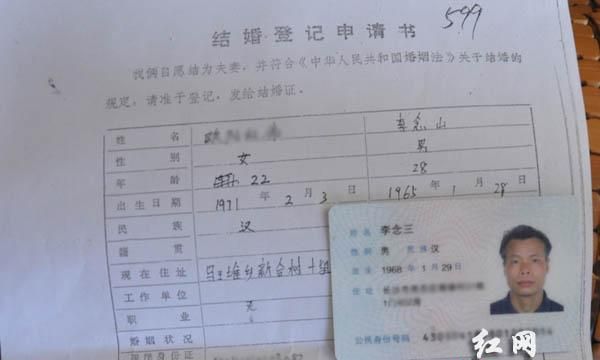 599
结婚登记申请书
我俩自愿结为夫妻，并符合《中华人民共和国婚姻法》关于结婚的
规定，请准于登记，发给结婚证。
姓 名 李念山
性 别 女 男
年 龄 22 28
出生日期 1971 年 2 月 3 1965 年 1 月 28
民 族 汉
籍 贯
现在住址 马王堆乡新合村十组
工作单位 无
职 业
婚姻状况
姓名 李念三
性别 男 民族 汉
出生 1968 年 1 月 29 日
住址
公民身份号码
红网